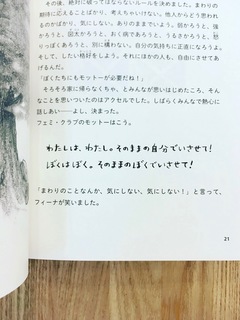 その後、絶対に破ってはならないルールを決めました。まわりの
期待に応えることばかり、考えちゃいけない。他人からどう思われ
るのかばかり、気にしない。ありのままでいよう。弱かろうと、強
かろうと、固太かろうと、おく病であろうと、うるさかろうと、怒
りっぽくあろうと、別に構わない。自分の気持ちに正直になろうよ。
そして、したい格好をしよう。それにほかの人も、自由にさせてあ
げるんだ。
「ぼくたちにもモットーが必要だね！」
そろそろ家に帰らなくちゃ、とみんなが思いはじめたころ、そん
なことを思いついたのはアクセルでした。しばらくみんなで熱心に
話しあい──よし、決まった。
フェミ・クラブのモットーはこう。
わたしは、わたし。そのままの自分でいさせて！
ぼくはぼく。そのままのぼくでいさせて！
「まわりのことなんか、気にしない、気にしない！」と言って、
フィーナが笑いました。
21